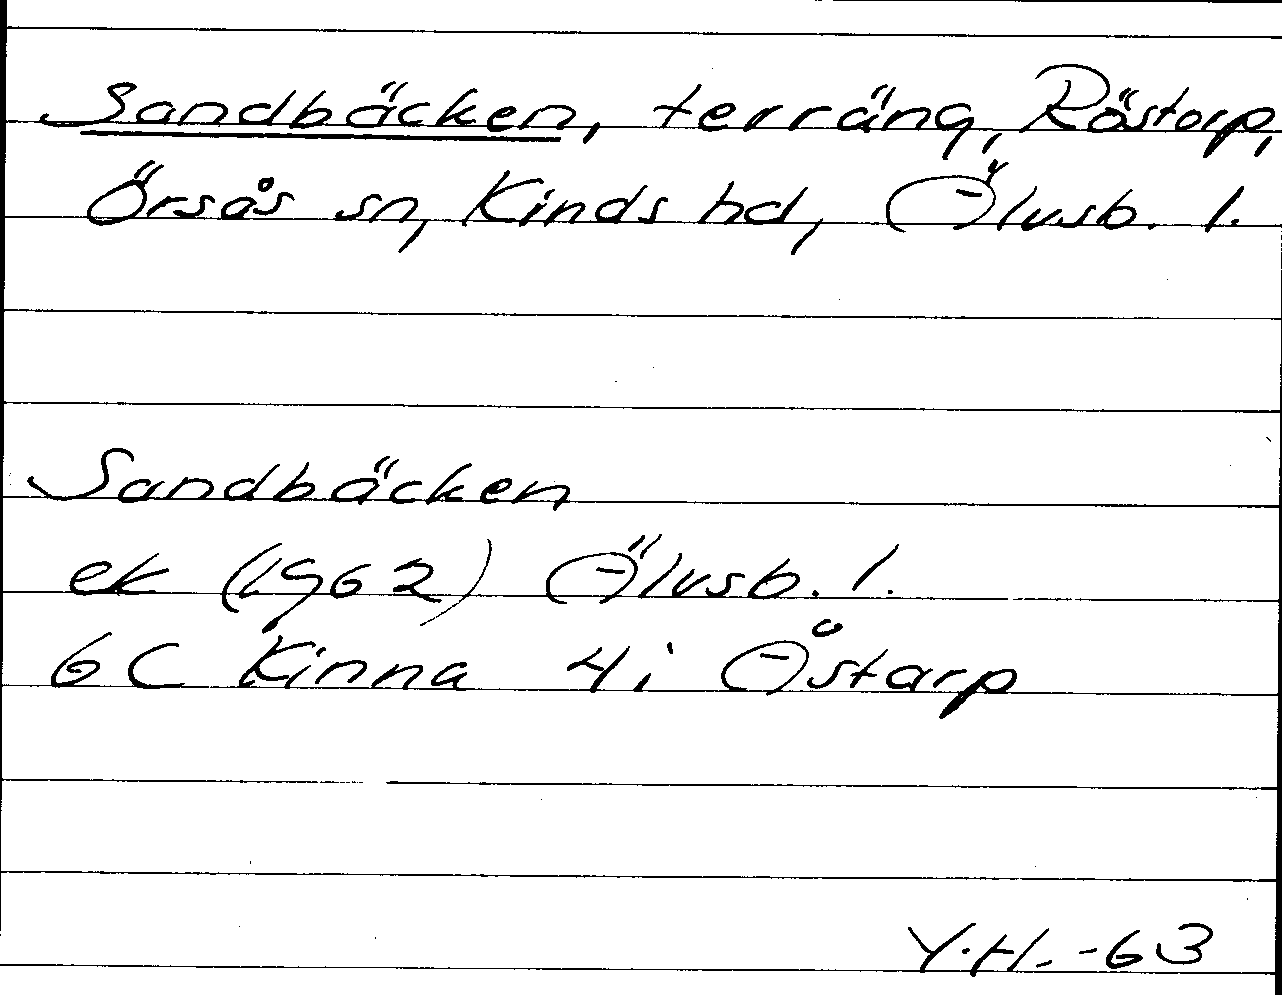 Sandbäcken, terräng, Röstorp,
Örsås sn, Kinds hd, Älvsb. l.
Sandbäcken
ek (1962) Älvsb. l.
6C Kinna 4i Åstarp
Y.H. -63